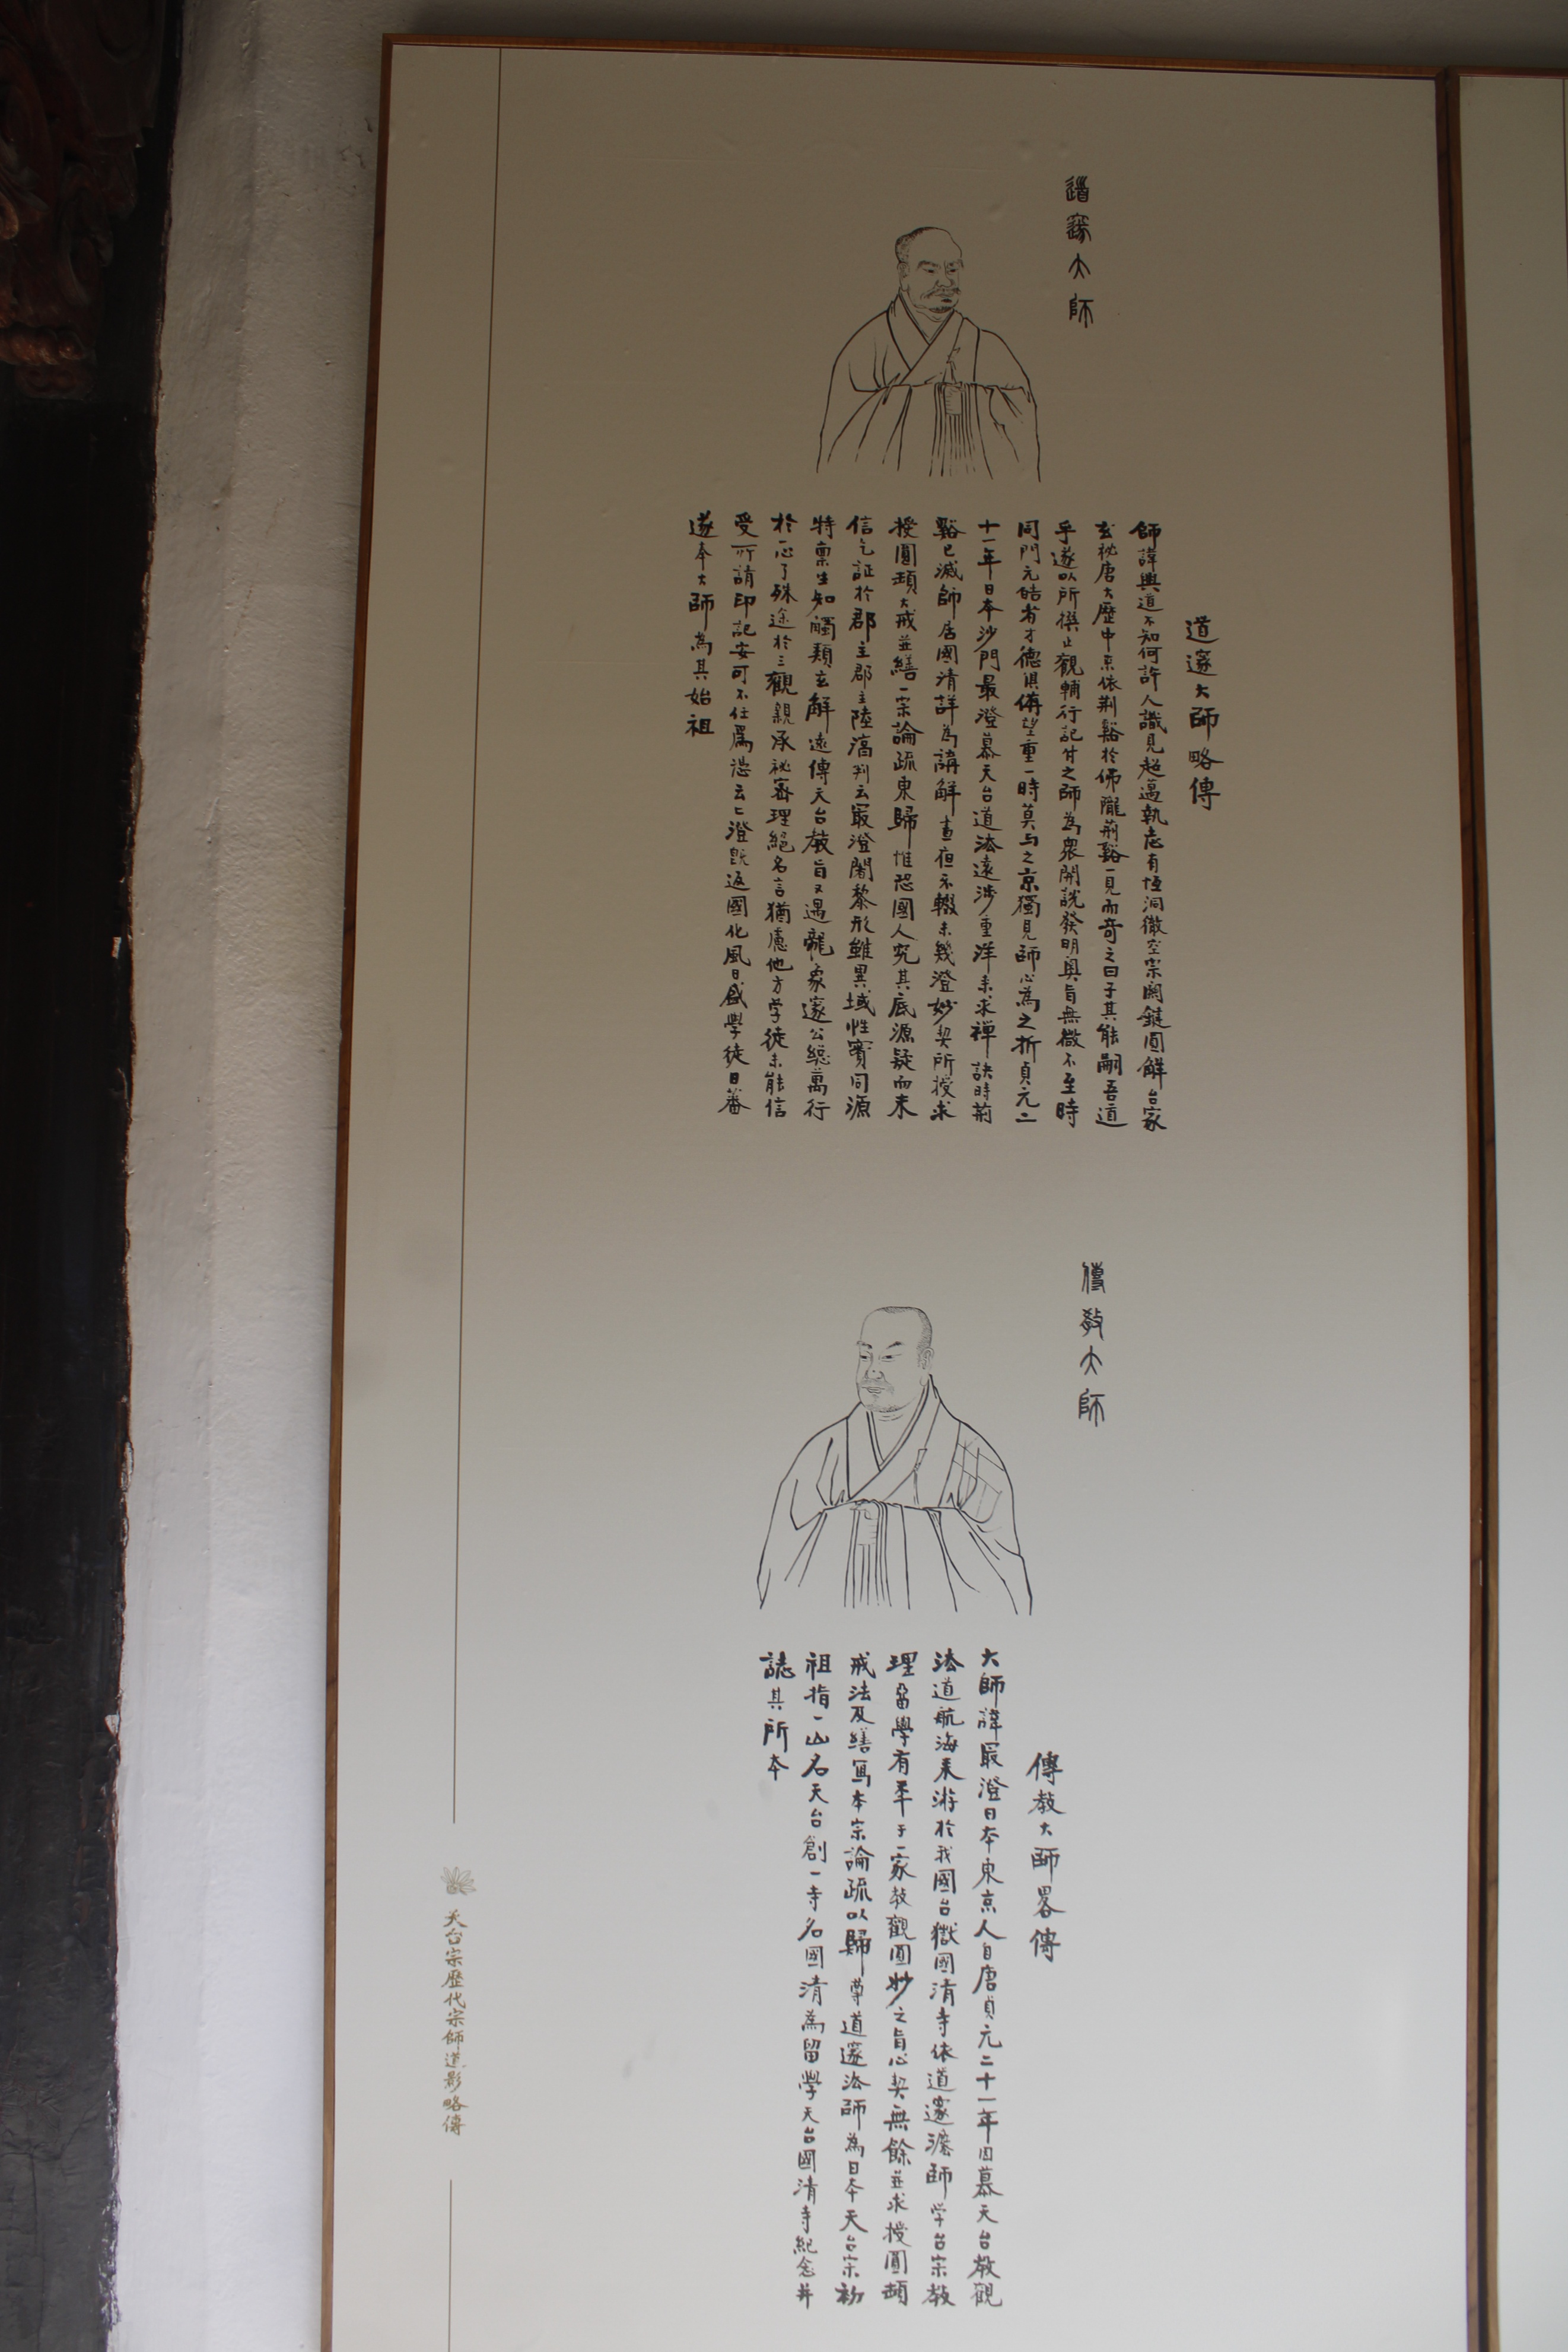 道邃大師
道邃大師略傳
師諱興道不知何許人識見超邁執志有恆洞徹空宗関鍵圓解台家
玄祕唐大歷中來依荆谿於佛隴荊谿一見而奇之曰子其能嗣吾道
乎遂以所撰止觀輔行記付之師為衆開說發明奥旨無微不至時
同門元皓者才德俱備望重一時莫与之京獨見師心為之折貞元二
十一年日本沙門最澄慕天台道法遠涉重洋来求禅訣時荊
谿已滅師居國清詳為講解晝夜不輟未幾澄妙契所授求
授圓頓大戒並繕一宗論疏東歸惟恐國人究其底源疑而未
信乞証於郡主郡主陸淳判云最澄闍黎形雖異域性實同源
特禀生知觸類玄解遠傳天台教旨又遇龍象邃公總萬行
於一心了殊途於三觀親承祕密理絕名言猶慮他方学徒未能信
受所請印記安可不任為憑云云澄既返國化風日盛學徒日蕃
遂奉大師為其始祖
傳教大師
傳教大師畧傳
大師諱最澄日本東京人自唐貞元二十一年因慕天台教觀
法道航海來游於我國台嶽國清寺依道邃法師学台宗教
理留學有年于一家教觀圓妙之旨心契無餘並求授圓頓
戒法及繕寫本宗論疏以歸尊道邃法師為日本天台宗初
祖指一山名天台創一寺名國清為留學天台國清寺紀念并
誌其所本
天台宗歷代宗師道影略傳